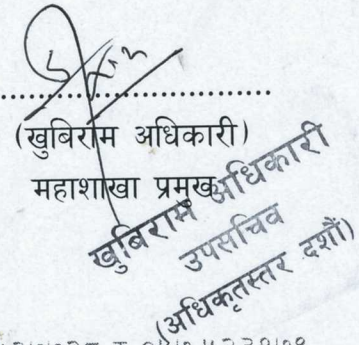 (खुबिराम अधिकारी)
महाशाखा प्रमुख
खुबिराम अधिकारी
उपसचिव
(अधिकृतस्तर दशौं)